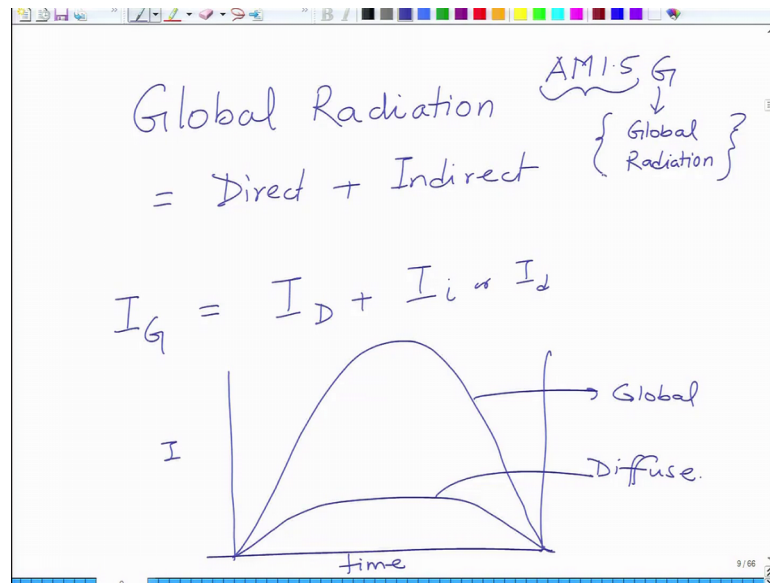 AM1.5 G
Global Radiation
{ Global
Radiation }
= Direct + Indirect
I_G = I_D + I_i or I_d
Global
I
Diffuse.
time
9 / 66